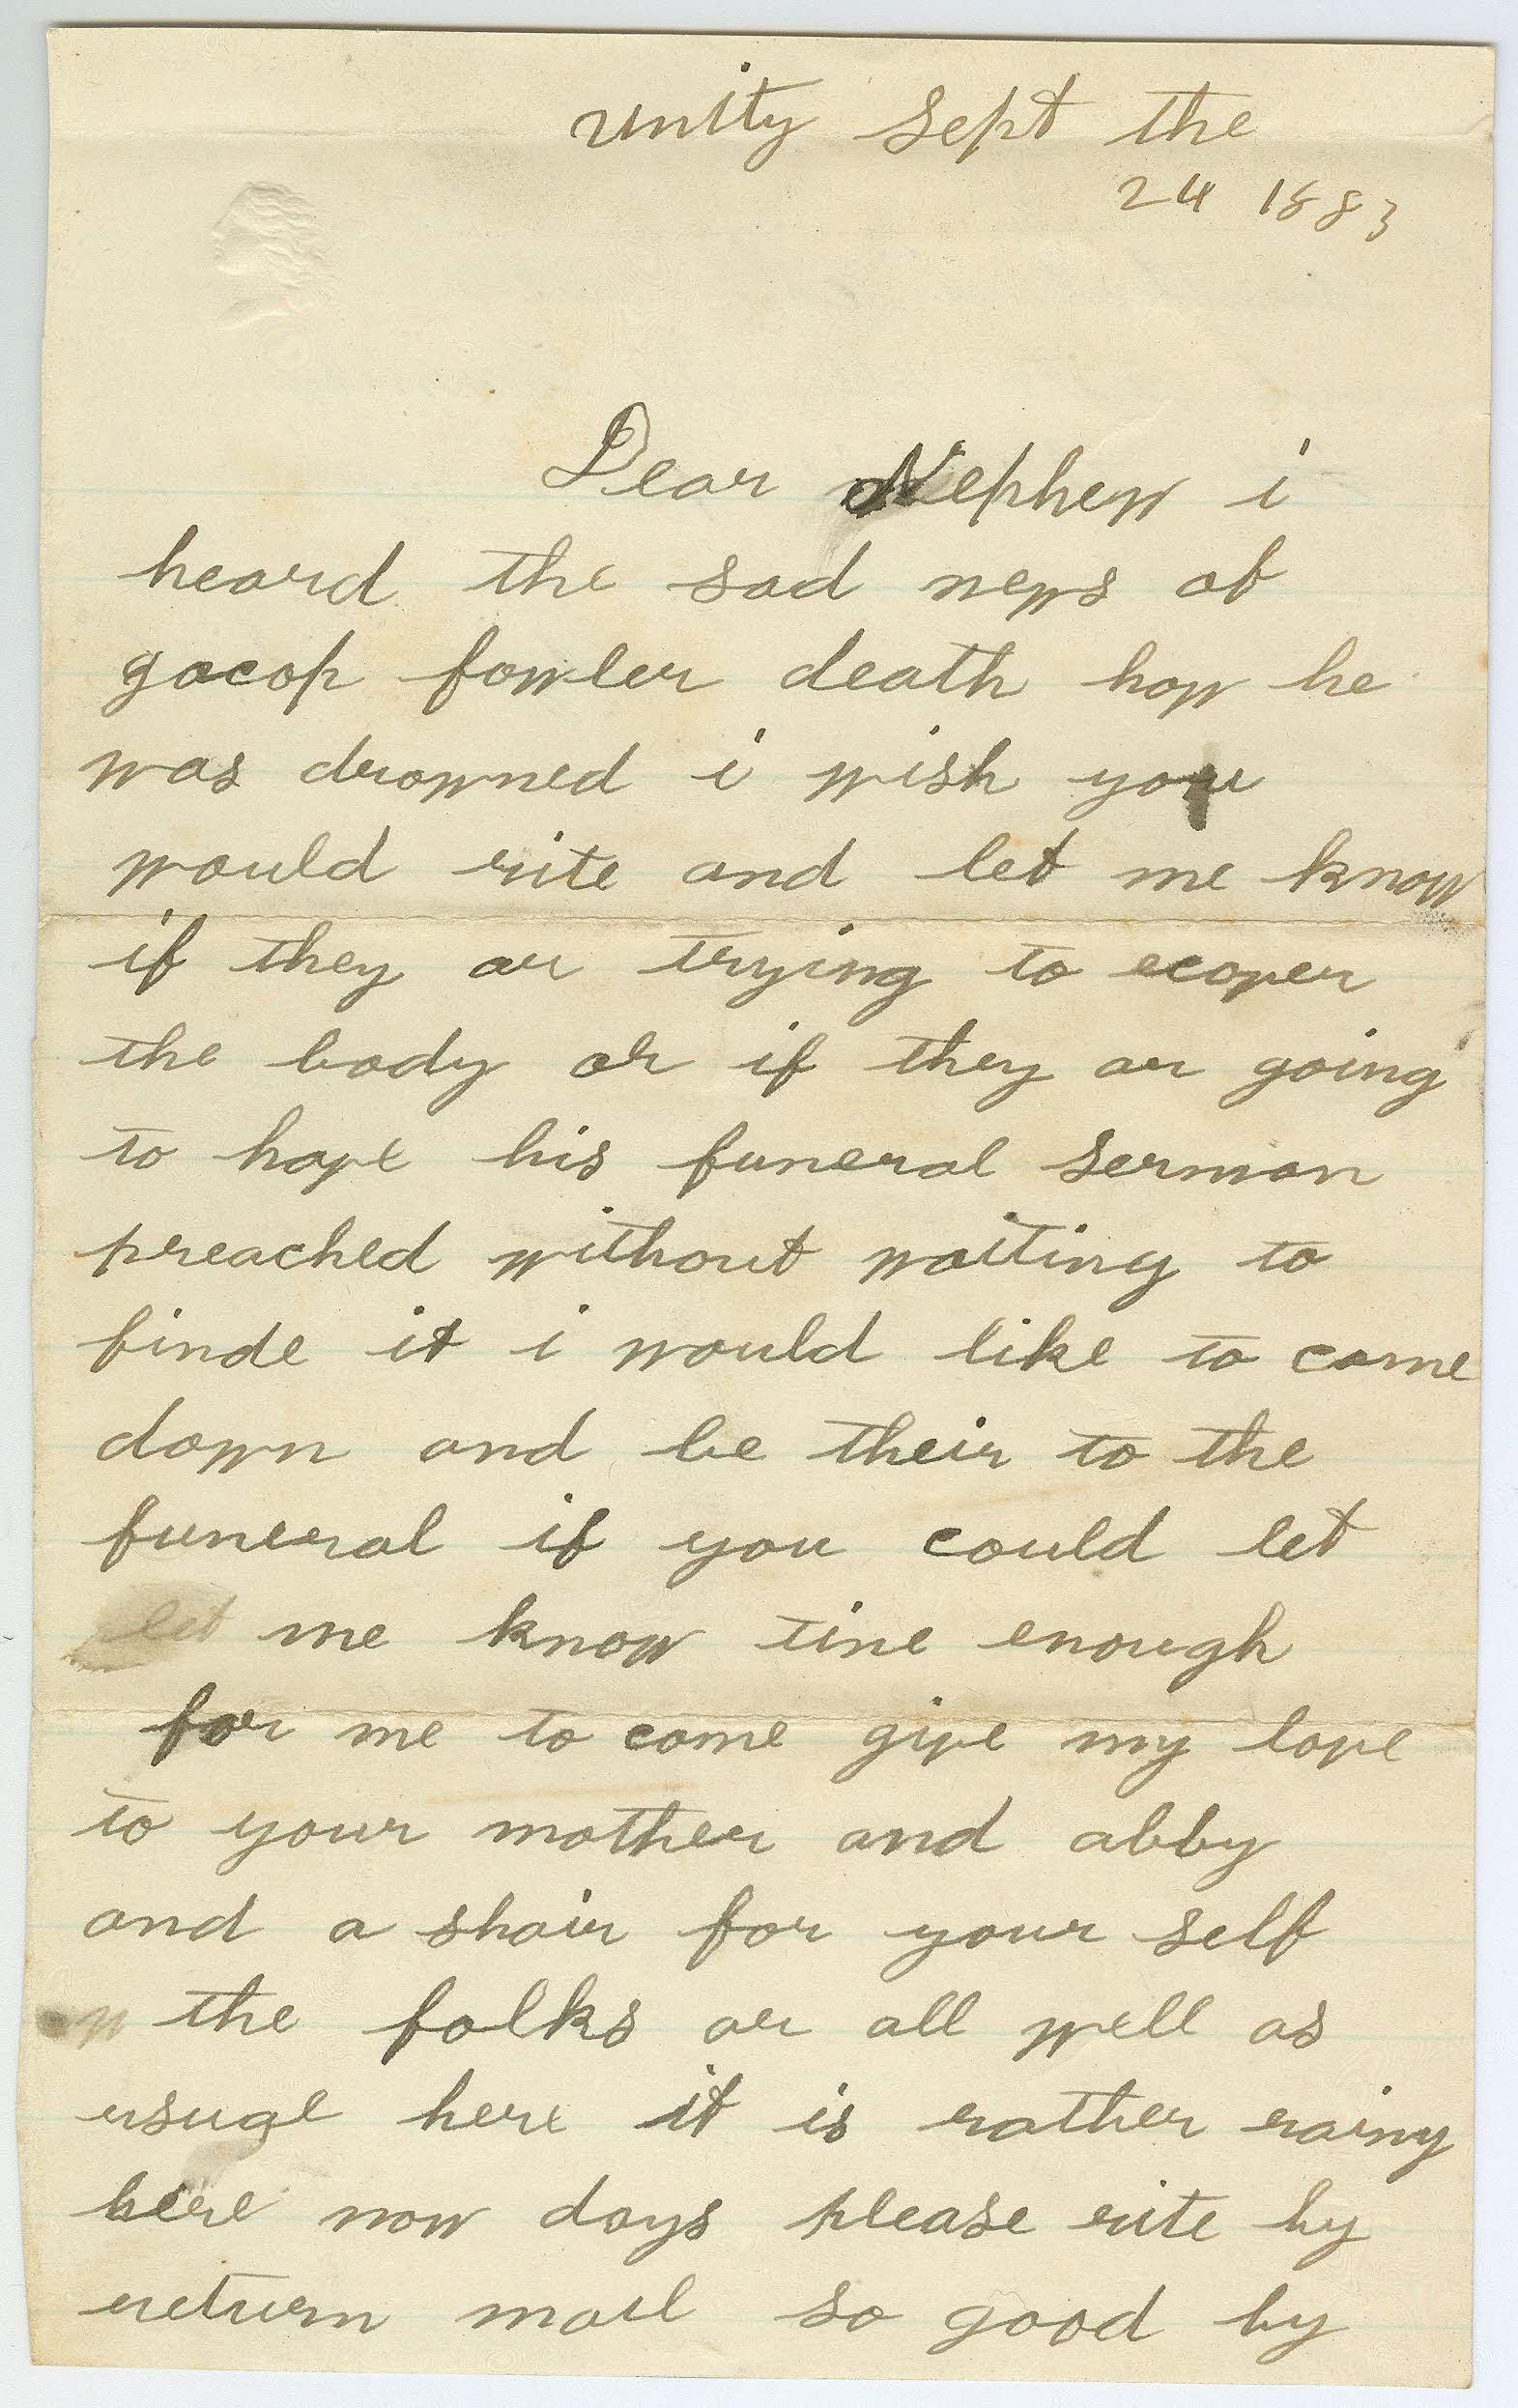 unity Sept the
24 1883
Dear Nephew i
heard the sad news of
gocop fowler death how he
was drowned i wish you
would rite and let me know
if they ar trying to ecover
the body or if they ar going
to have his funeral sermon
preached without waiting to
finde it i would like to come
down and be their to the
funeral if you could let
let me know tine enough
for me to come give my love
to your mother and abby
and a shair for your self
the folks ar all well as
usual here it is rather rainy
here now days please rite by
return mail so good by